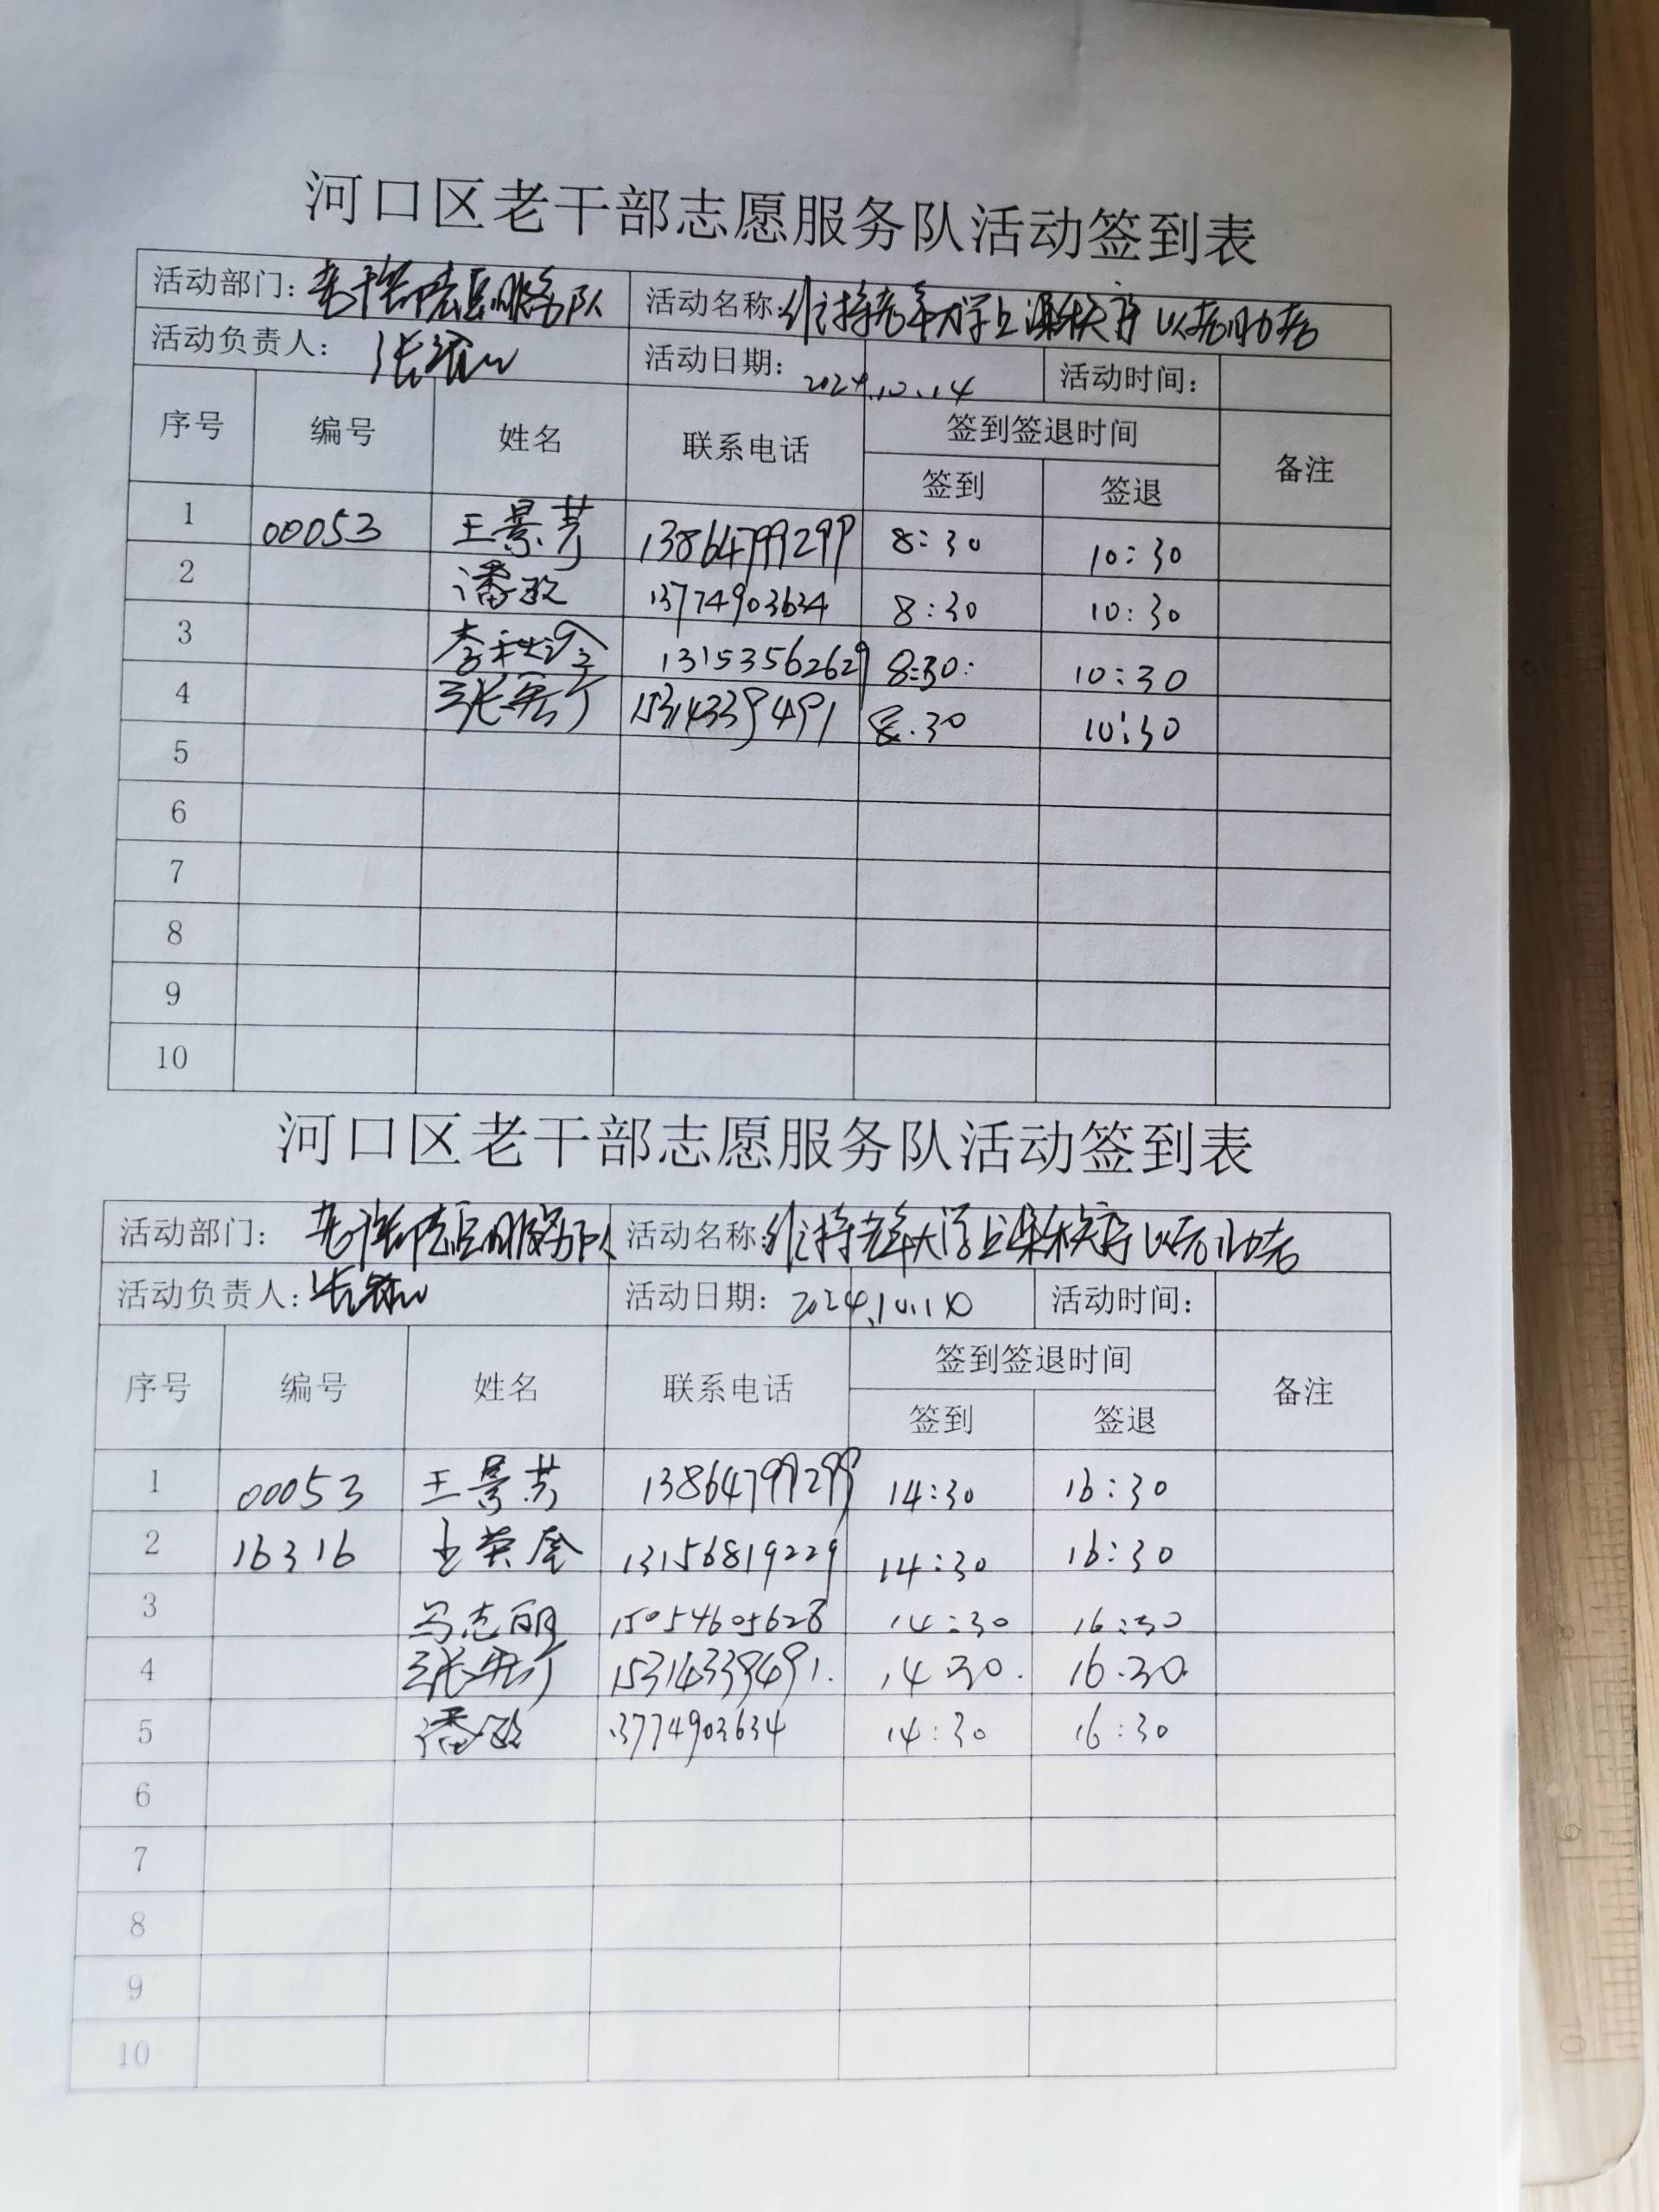 河口区老干部志愿服务队活动签到表
活动部门：老干部志愿服务队 活动名称：维持老年大学上课秩序 以老助老
活动负责人：张 活动日期：2024.10.14 活动时间：
序号 编号 姓名 联系电话 签到签退时间 备注
签到 签退
1 00053 王景芳 13864799299 8:30 10:30
2 潘政 13774903634 8:30 10:30
3 李 13153562629 8:30: 10:30
4 张 15314339491 8.30 10:30
5
6
7
8
9
10
河口区老干部志愿服务队活动签到表
活动部门： 老干部志愿服务队 活动名称：维持老年大学上课秩序 以老助老
活动负责人：张 活动日期： 活动时间：
序号 编号 姓名 联系电话 签到签退时间 备注
签到 签退
1 00053 王景芳 13864799299 14:30 16:30
2 16316 王英 13156819229 14:30 16:30
3 马志丽 15054605628 14:30 16:30
4 张 15314339491. 14 30. 16.30.
5 潘政 13774903634 14:30 16:30
6
7
8
9
10